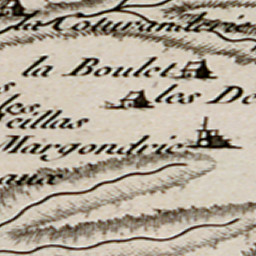 la Couranderie
la Boulet
les De
les
eillas
Margondrie
aux